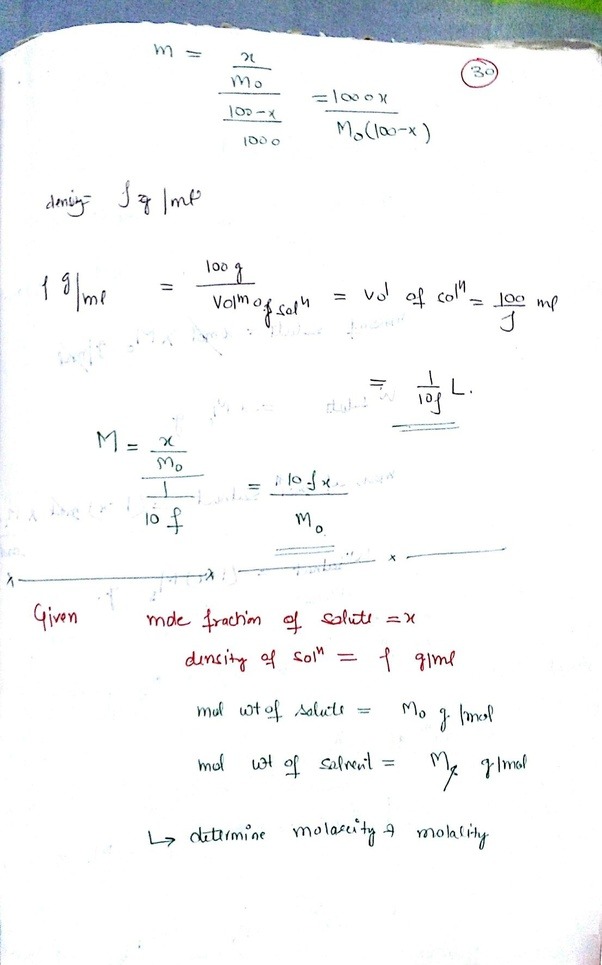 30
m = x/M₀ / (100-x)/1000 = 1000x / M₀(100-x)
density = ʃ g/ml
ʃ g/ml = 100g / Volm of solⁿ = vol of solⁿ = 100/ʃ ml
= 1/10ʃ L.
M = x/M₀ / 1/10ʃ = 10ʃx / M₀
Given mole fraction of solute = x
density of solⁿ = ʃ g/ml
mol wt of solute = M₀ g/mol
mol wt of solvent = g/mol
↳ determine molarity & molality